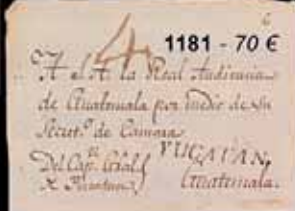 4
1181 - 70 €
A la Real Audiencia
de Guatemala por medio de su
Secret.º de Camara
Del Cap.
YUCATAN,
Guatemala.